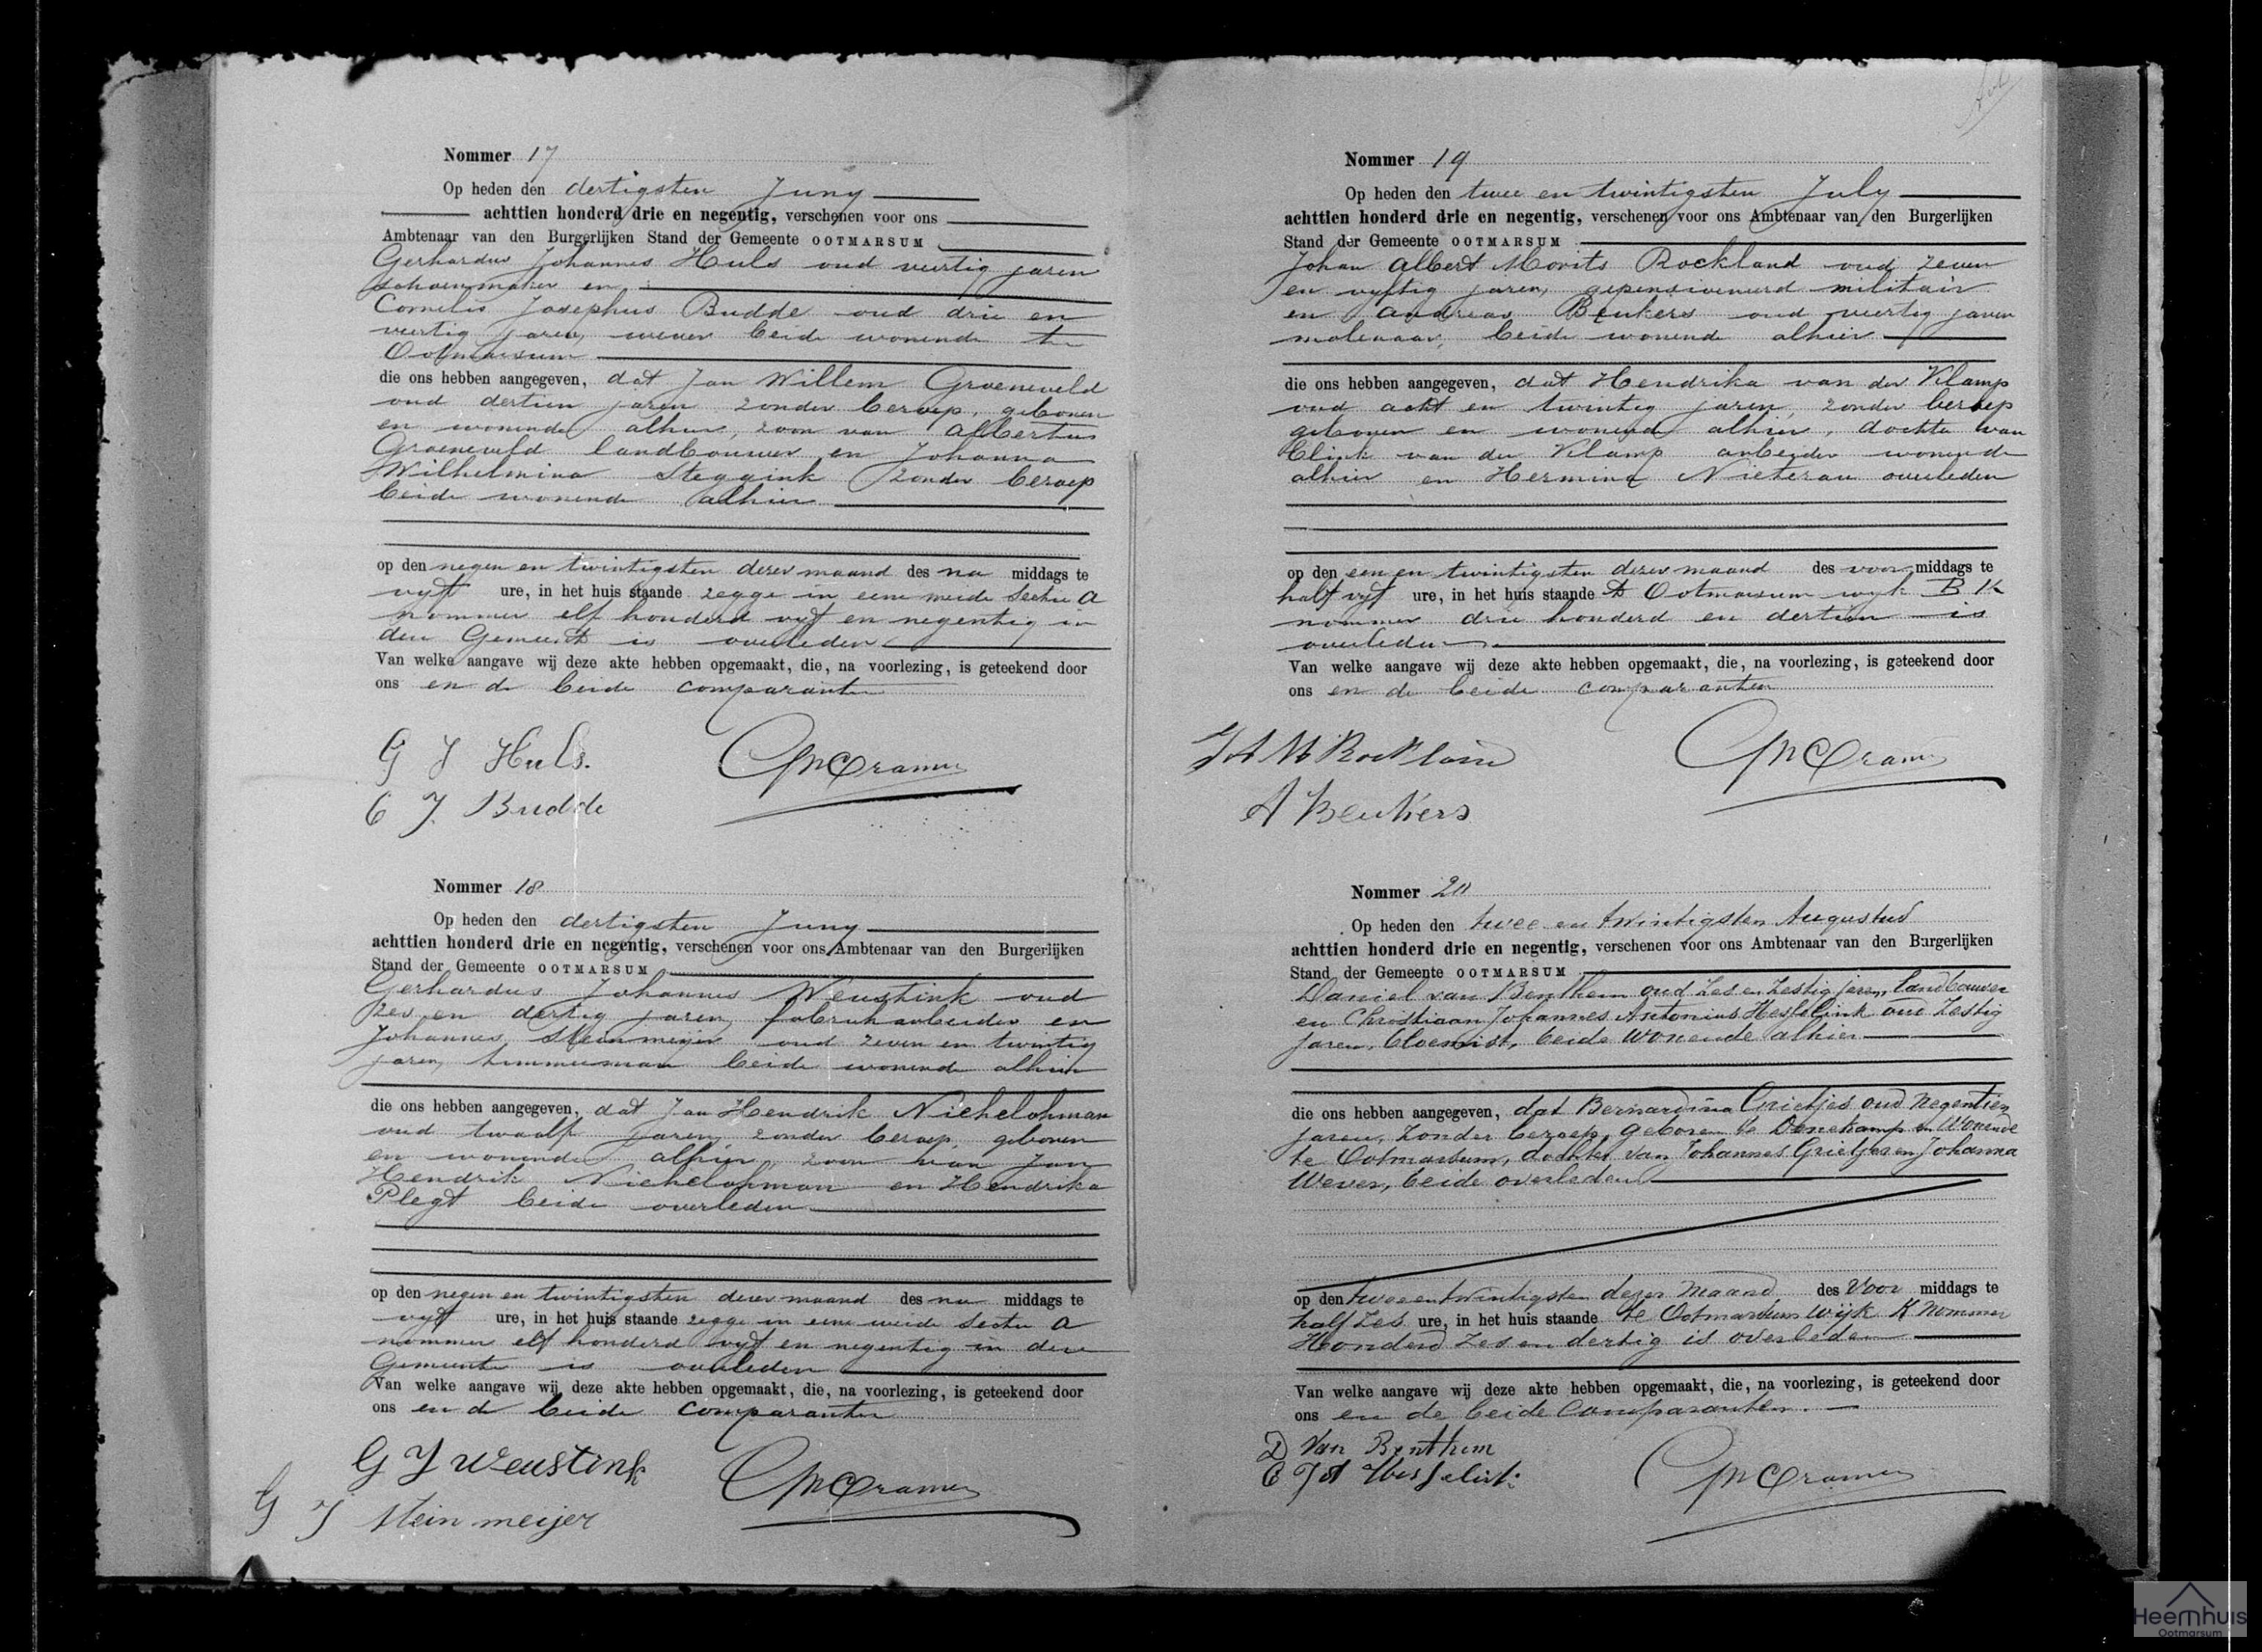 Nommer 17
Op heden den dertigsten Juny
achttien honderd drie en negentig, verschenen voor ons
Ambtenaar van den Burgerlijken Stand der Gemeente OOTMARSUM
Gerhardus Johannes Huls oud veertig jaren
schoenmaker en
Cornelis Josephus Budde oud drie en
veertig jaren, wever beide wonende te
Ootmarsum
die ons hebben aangegeven, dat Jan Willem Groeneveld
oud dertien jaren, zonder beroep, geboren
en wonende alhier, zoon van Albertus
Groeneveld landbouwer en Johanna
Wilhelmina Steggink zonder beroep
beide wonende alhier
op den negen en twintigsten dezer maand des na middags te
vyf ure, in het huis staande zegge in eene weide Sectie A
nommer elf honderd vyf en negentig in
deze Gemeente is overleden
Van welke aangave wij deze akte hebben opgemaakt, die, na voorlezing, is geteekend door
ons en de beide comparanten
G J Huls.
C J Budde
Cramer
Nommer 18
Op heden den dertigsten Juny
achttien honderd drie en negentig, verschenen voor ons Ambtenaar van den Burgerlijken
Stand der Gemeente OOTMARSUM
Gerhardus Johannes Weustink oud
zes en dertig jaren, fabriekarbeider en
Johannes Steinmeijer oud zeven en twintig
jaren, timmerman beide wonende alhier
die ons hebben aangegeven, dat Jan Hendrik Niehelohman
oud twaalf jaren, zonder beroep, geboren
en wonende alhier, zoon van Jan
Hendrik Niehelohman en Hendrika
Plegt beide overleden
op den negen en twintigsten dezer maand des na middags te
vyf ure, in het huis staande zegge in eene weide Sectie A
nommer elf honderd vyf en negentig in deze
Gemeente is overleden
Van welke aangave wij deze akte hebben opgemaakt, die, na voorlezing, is geteekend door
ons en de beide comparanten
G J Weustink
G J Steinmeijer
Cramer
Nommer 19
Op heden den twee en twintigsten July
achttien honderd drie en negentig, verschenen voor ons Ambtenaar van den Burgerlijken
Stand der Gemeente OOTMARSUM
Johan Albert Morits Rockland oud zeven
en vyftig jaren, gepensioneerd militair
en Andreas Beukers oud veertig jaren
molenaar, beide wonende alhier
die ons hebben aangegeven, dat Hendrika van der Klamp
oud acht en twintig jaren, zonder beroep
geboren en wonend alhier, dochter van
van der Klamp arbeider wonende
alhier en Hermina overleden
op den een en twintigsten dezer maand des voor middags te
half vyf ure, in het huis staande te Ootmarsum wyk B
nommer drie honderd en dertien is
overleden
Van welke aangave wij deze akte hebben opgemaakt, die, na voorlezing, is geteekend door
ons en de beide comparanten
J A M Rockland
A Beukers
Cramer
Nommer 20
Op heden den twee en twintigsten Augustus
achttien honderd drie en negentig, verschenen voor ons Ambtenaar van den Burgerlijken
Stand der Gemeente OOTMARSUM
Daniel van Benthem oud Zes en Zestig jaren, landbouwer
en Christiaan Johannes Antonius Hesselink oud Zestig
jaren, bloemist, beide wonende alhier
die ons hebben aangegeven, dat Bernardina Grietjes oud negentien
jaren, zonder beroep, geboren te Denekamp en wonende
te Ootmarsum, dochter van Johannes Grietjes en Johanna
Wever, beide overleden
op den twee en twintigsten dezer maand des Voor middags te
half Zes ure, in het huis staande te Ootmarsum Wijk K nommer
Honderd Zes en dertig is overleden
Van welke aangave wij deze akte hebben opgemaakt, die, na voorlezing, is geteekend door
ons en de beide Comparanten.
D Van Benthem
C J A Hesselink
Cramer
Heemhuis
Ootmarsum